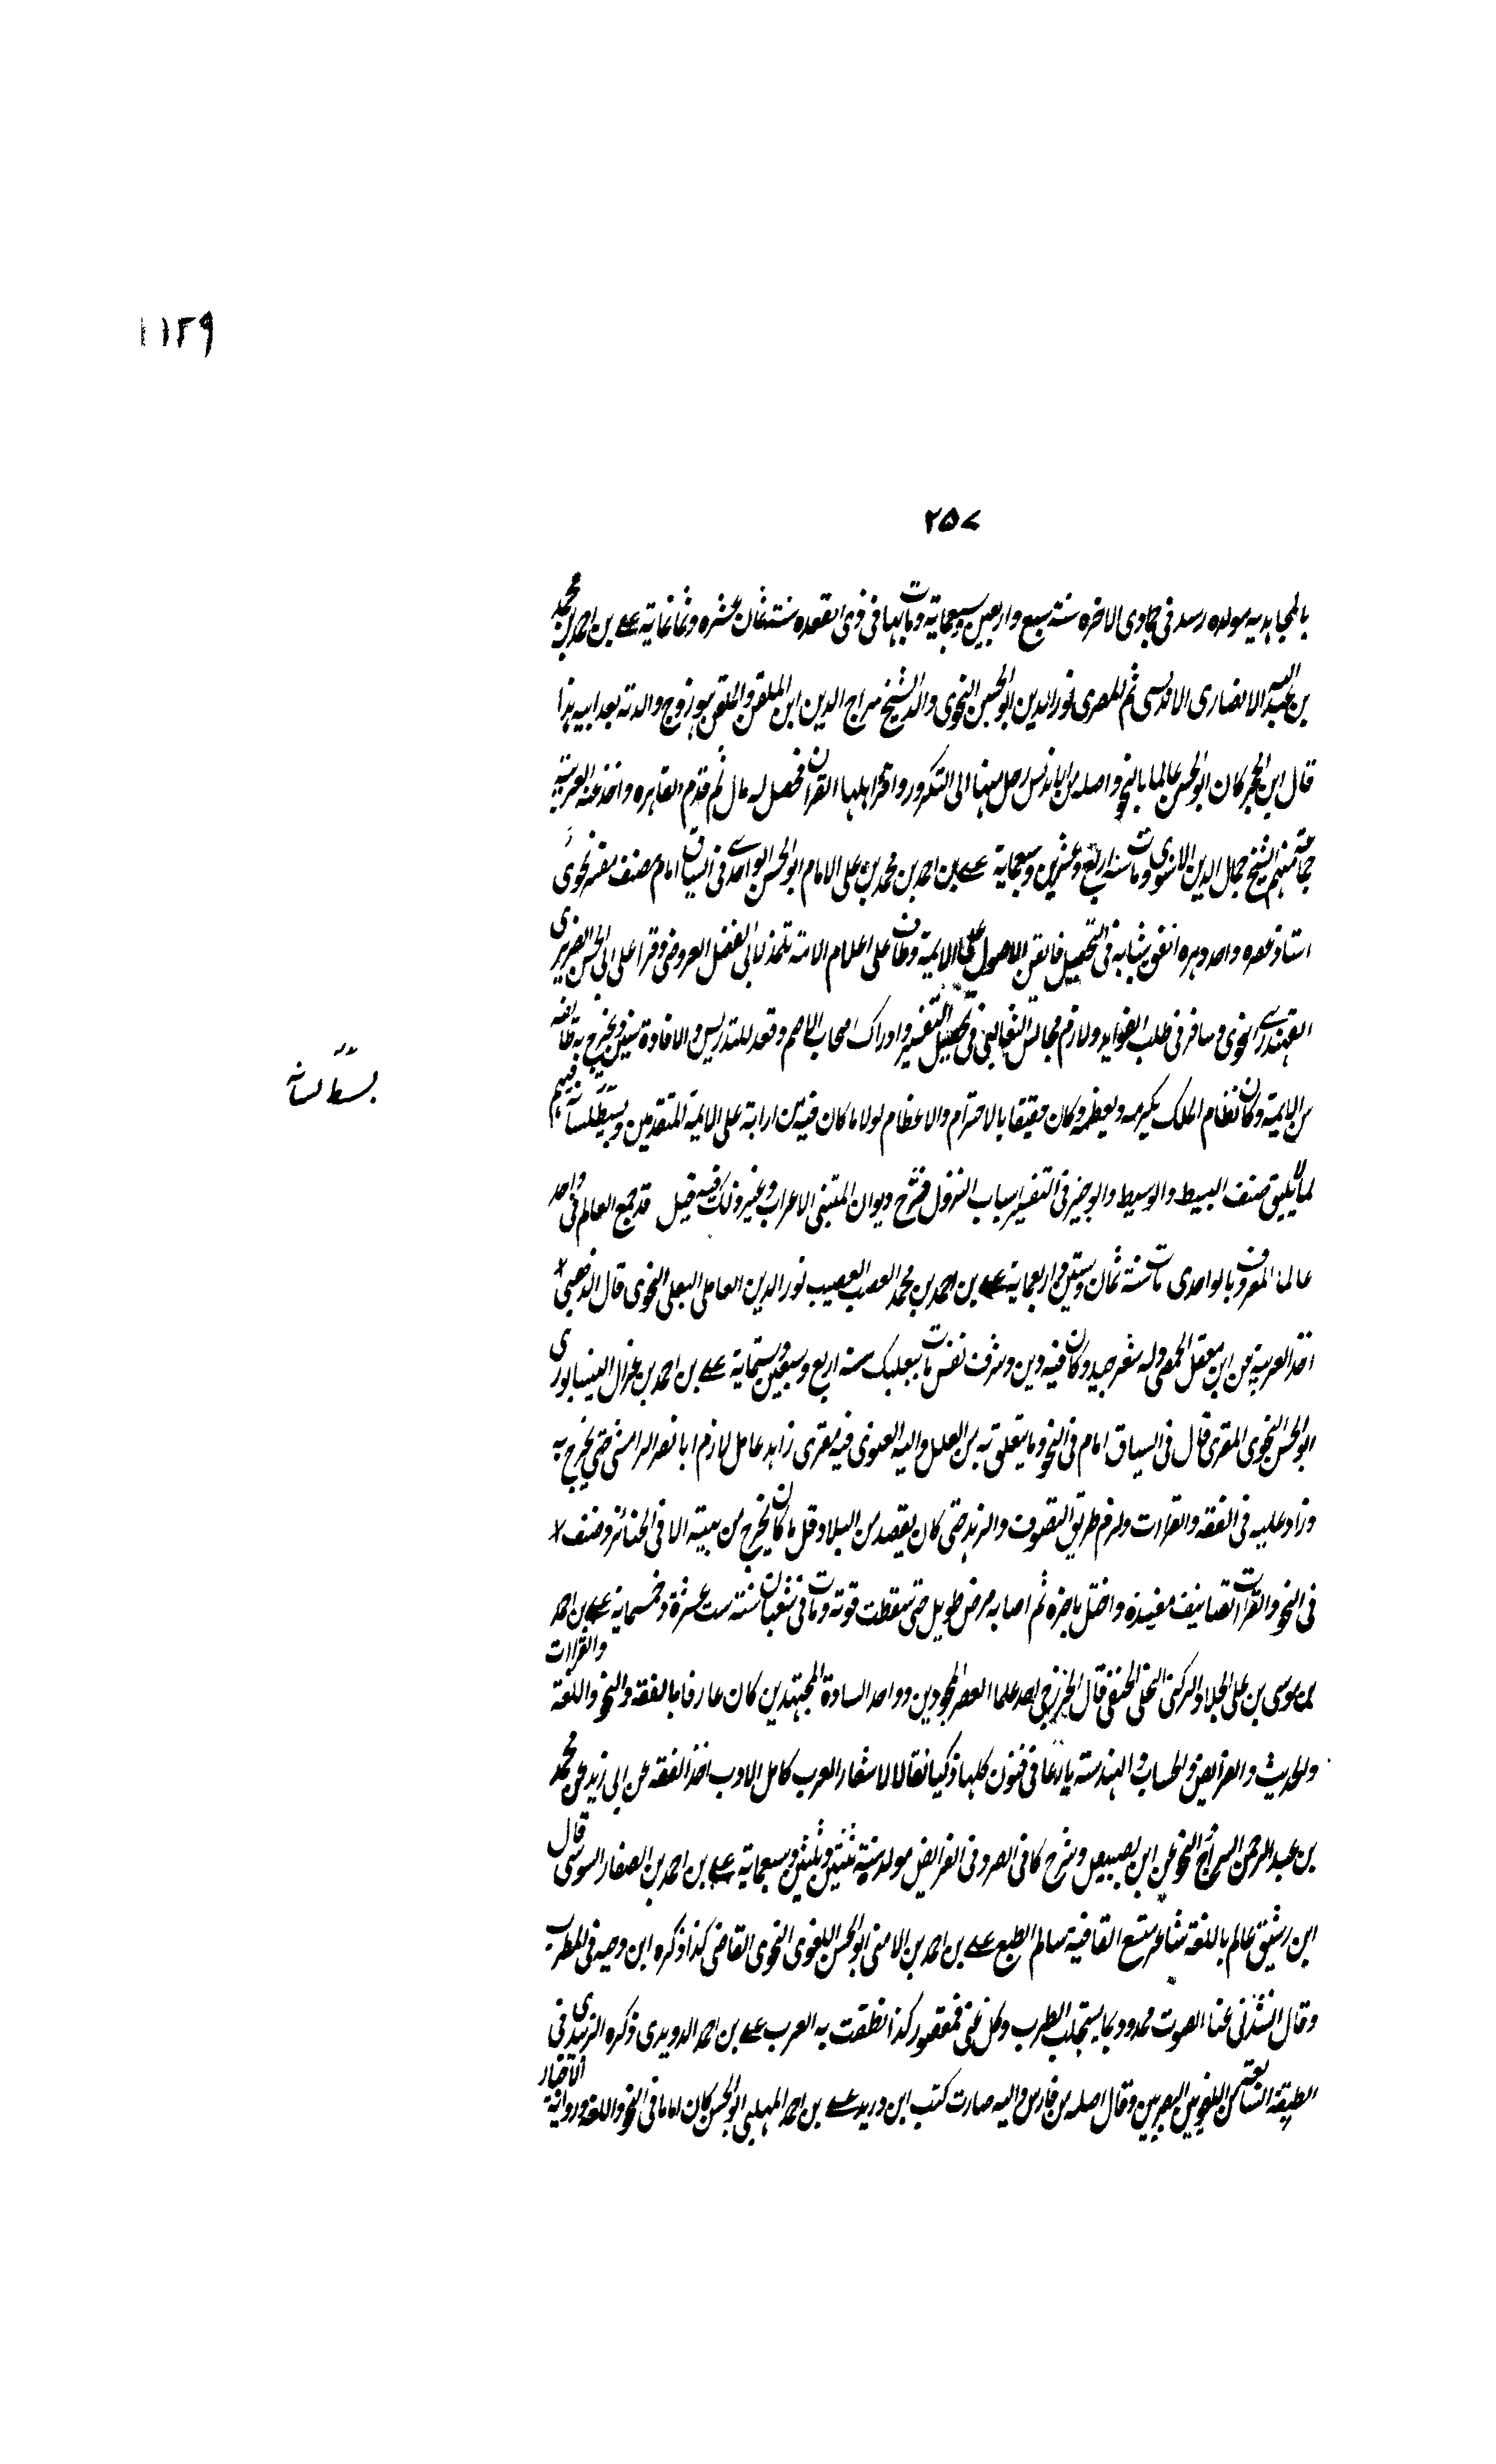 ١١٢٩
٢٥٧
بالمجاهدية مولده رسد فى جمادى الاخره سنة سبع واربعين وسبعماية ومات بها فى ذى القعده سنة ثمان عشره وثمانماية على بن احمد بن محمد
بن عبد الله الانصارى الاندلسى ثم المصرى نور الدين ابو الحسن النحوى والد الشيخ سراج الدين ابن الملقن والملقن هو زوج والدته بعد ابيه هذا
قال ابن الحجر كان ابو الحسن عالما بالنحو واصله من الاندلس رحل منها الى التكرور واقرا اهلها القرآن فحصل له مال ثم قدم القاهره واخذ عنه العربية
جماعة منهم الشيخ جمال الدين الاسنوى ومات سنة اربع وعشرين وسبعماية على بن احمد بن محمد بن على الامام ابو الحسن الواحدى فى السياق امام مصنف مفسر نحوى
استاذ عصره واحد دهره انفق شبابه فى التحصيل فاتقن الاصول على الايمة وطاف على اعلام الامة تلمذ لابى الفضل العروضى وقرا على ابى الحسن الضريرى
القهندزى النحوى وسافر فى طلب الفوايد ولازم مجالس الثعالبى فى تحصيل التفسير وادراك اصحاب الاصم وقعد للتدريس والافادة سنين وتخرج به طائفه
من الايمة وكان نظام الملك يكرمه ويعظمه وكان حقيقا بالاحترام والاعظام لولا ما كان فيه من ازرائه على الايمة المتقدمين وبسط لسانه فيهم
بسط لسانه
بما لا يليق صنف البسيط والوسيط والوجيز فى التفسير اسباب النزول شرح ديوان المتنبى الاعراب وغير ذلك فيه قيل قد جمع العالم فى واحد
عالمنا المعروف بالواحدى مات سنة ثمان وستين واربعماية على بن احمد بن محمد العصب العصيب نور الدين العاملى البعلى النحوى قال الذهبى
اخذ العربية عن ابن معقل الحمصى وله شعر جيد وكان فيه دين وشرف نفس مات ببعلبك سنة اربع وسبعين وستماية على بن احمد بن غزال النيسابورى
ابو الحسن النحوى المقرى قال فى السياق امام فى النحو وما يتعلق به من العلل واليه الفتوى فيه مقرى زاهد عامل لازم ابا نصر الرامشى حتى تخرج به
وزاد عليه فى الفقه والقراات ولزم طريق التصوف والزهد حتى كان يقصد من البلاد قل ما كان يخرج من بيته الا فى الجنائز وصنف
فى النحو والقراات تصانيف مفيدة واختل باخره ثم اصابه مرض طويل حتى سقطت قوته ومات فى شعبان سنة ست عشرة وخمسماية على بن احمد
بن موسى بن على الجلاد الركنى النخلى الحنفى قال الخزرجى احد علما العصر المجودين وواحد السادة المجتهدين كان عارفا بالفقه والنحو واللغة والقراات
والحديث والفرايض والحساب والهندسة بارعا فى فنون كلها ذكيا نقالا لاشعار العرب كامل الادب اخذ الفقه عن ابى زيد محمد
بن عبد الرحمن السراج النحو عن ابن بصيبص وشرح كافى الصردفى الفرايض مولده سنة ثنتين وثلثين وسبعماية على بن احمد بن الصفار السوسى قال
ابن رشيق عالم باللغة شاعر متسع القافية سالم الطبع على بن احمد بن الامنى ابو الحسن اللغوى النحوى القاضى كذا ذكره ابن دحيه فى المطرب
وقال انشدنى غنا الصوت ممدود بما يستجلب الطرب وكل غنى فمقصور كذا نطقت به العرب على بن احمد الدويدى ذكره الزبيدى فى
الطبقة التاسعة من اللغويين البصريين وقال اصله من فارس واليه صارت كتب ابن دريد على بن احمد المهلبى ابو الحسن كان اماما فى النحو واللغة ورواية الاخبار